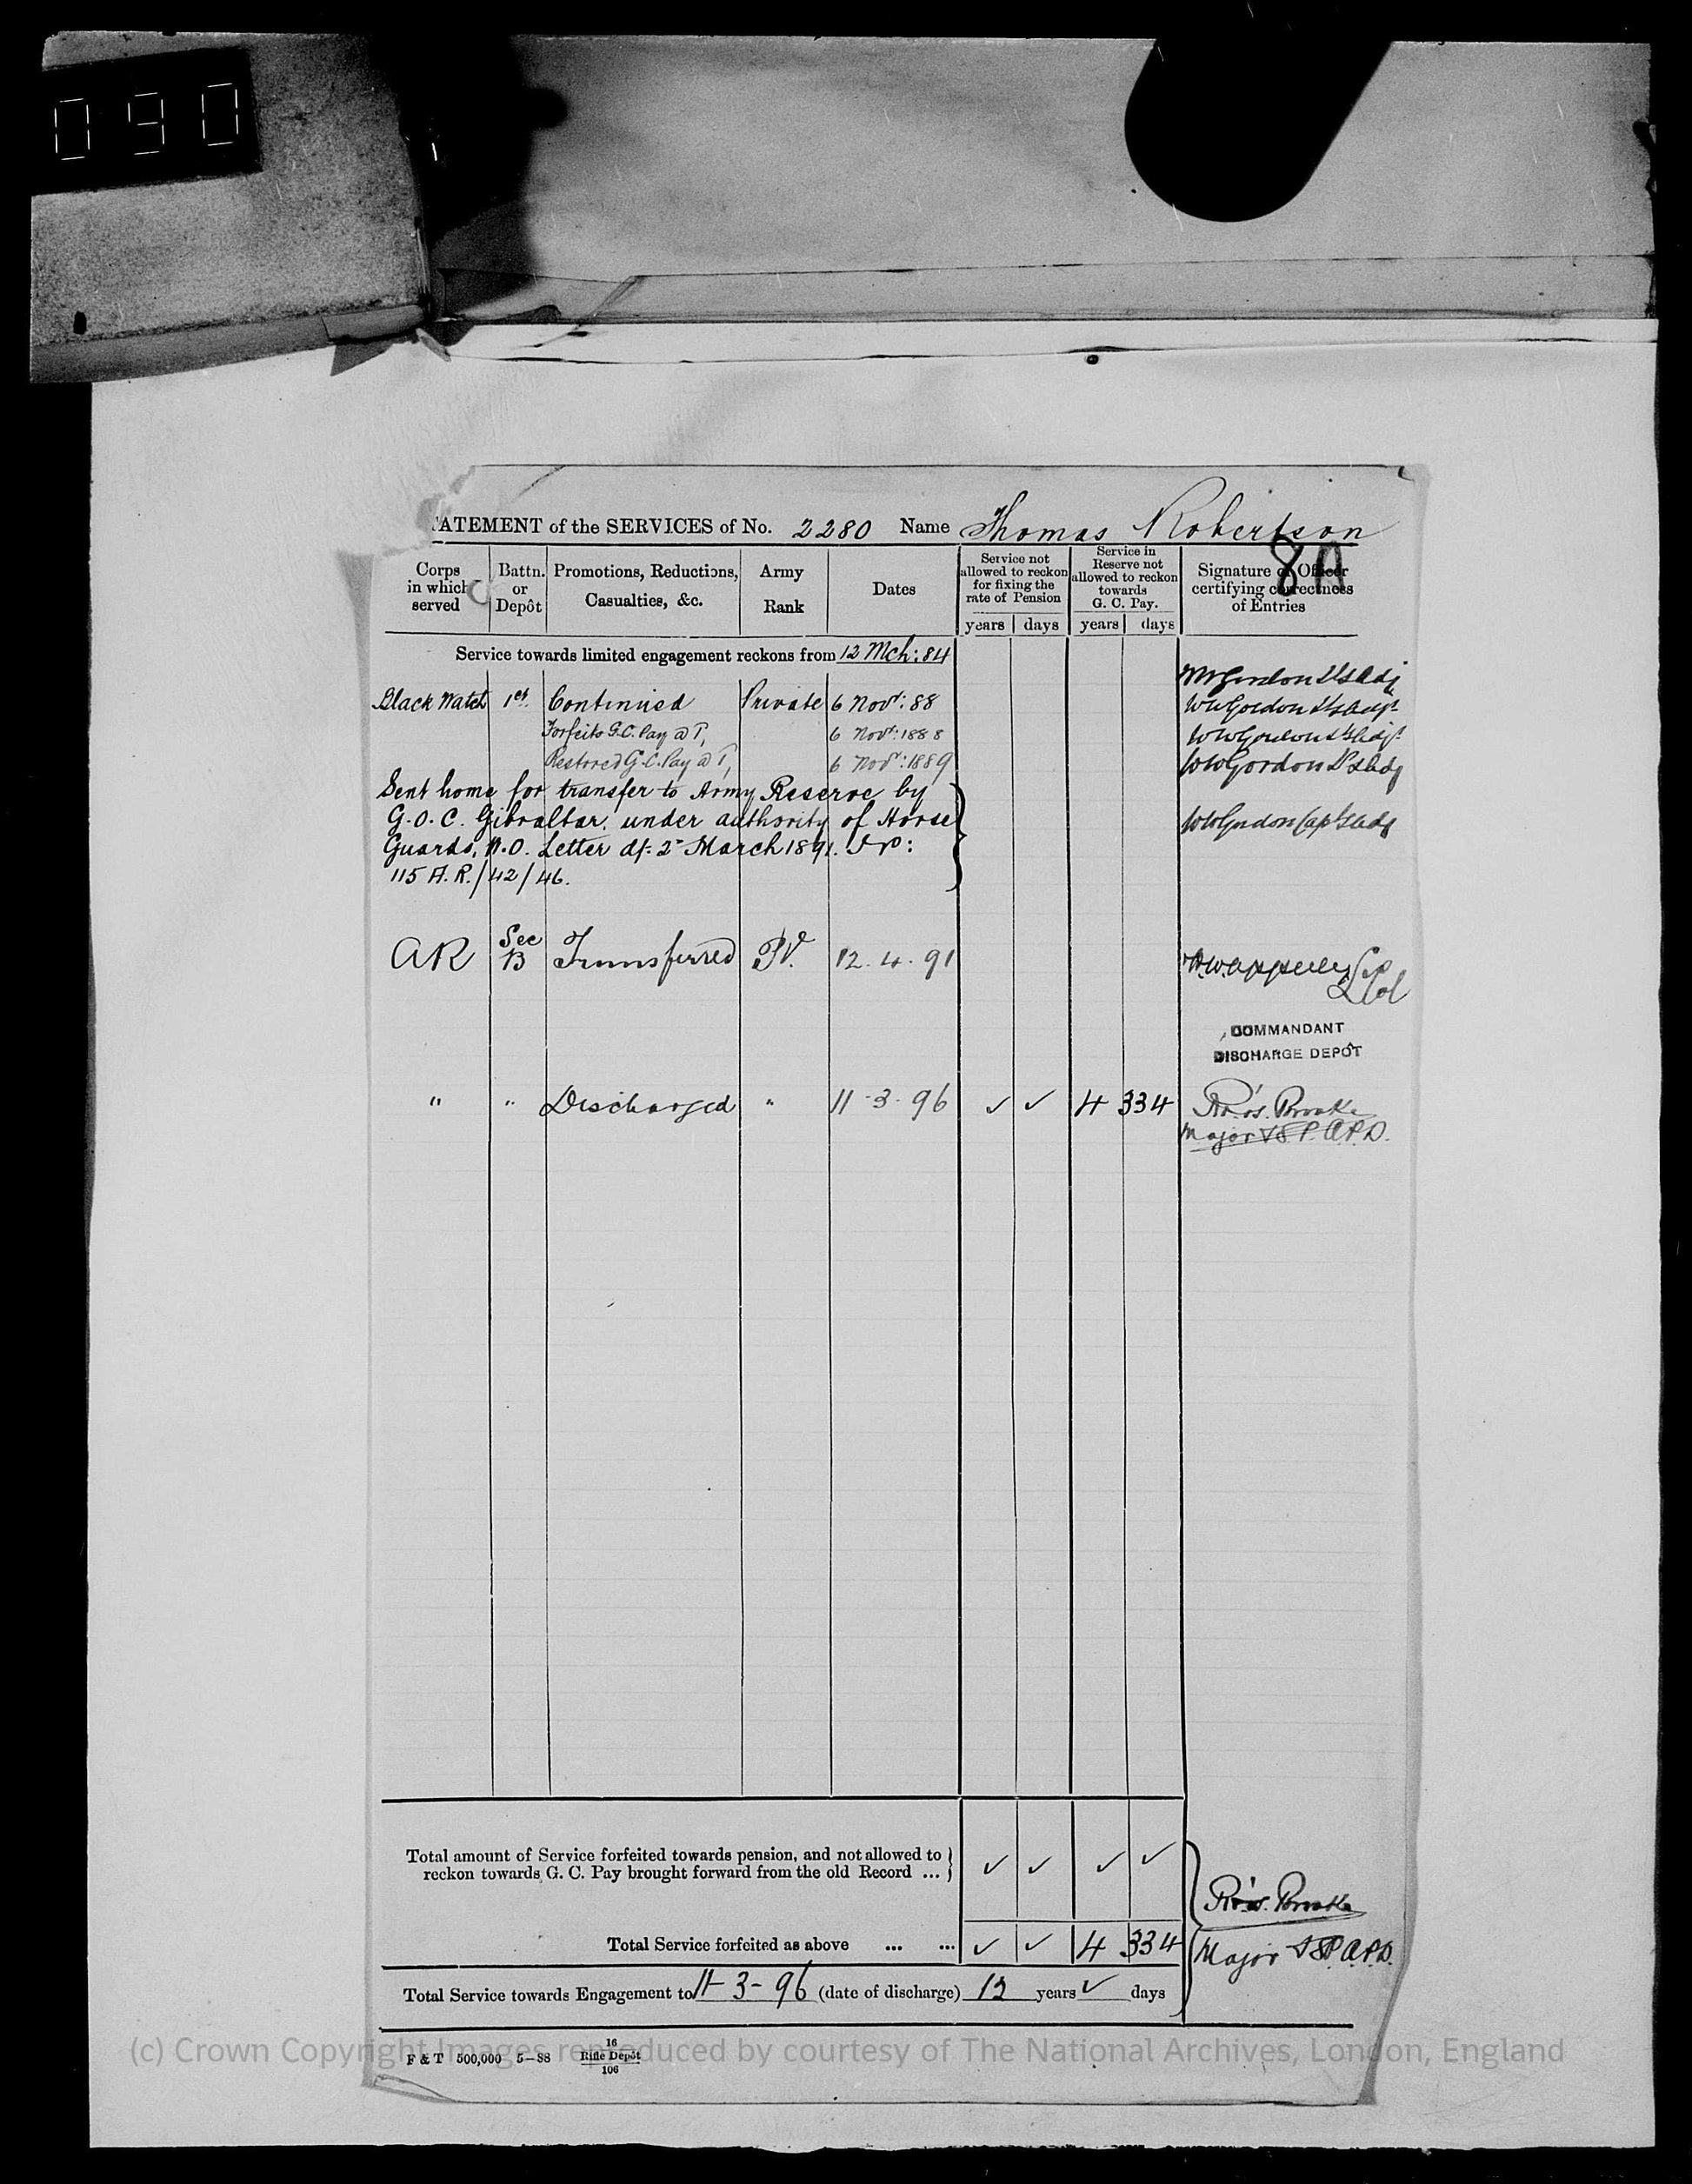 090
ATEMENT of the SERVICES of No. 2280 Name Thomas Robertson
8A
Corps in which served
Battn. or Depôt
Promotions, Reductions, Casualties, &c.
Army Rank
Dates
Service not allowed to reckon for fixing the rate of Pension
years days
Service in Reserve not allowed to reckon towards G. C. Pay.
years days
Signature of Officer certifying correctness of Entries
Service towards limited engagement reckons from 12 Mch: 84
Black Watch 1st Continued Private 6 Novr: 88 WWGordon Lt & Adjt
Forfeits G.C. Pay @ 1d 6 Novr: 1888 WWGordon Lt & Adjt
Restored G.C. Pay @ 1d 6 Novr: 1889 WWGordon Lt & Adj
Sent home for transfer to Army Reserve by
G.O.C. Gibraltar, under authority of Horse WWGordon Capt & Adj
Guards, W.O. Letter dt: 2d March 1891. No:
115 A.R./42/46.
AR Sec B Transferred Pt. 12.4.91
Lt Col
COMMANDANT
DISCHARGE DEPÔT
" " Discharged " 11-3-96 ✓ ✓ 4 334 Brooke
Major S.P. A.P.D.
Total amount of Service forfeited towards pension, and not allowed to
reckon towards G. C. Pay brought forward from the old Record ... ✓ ✓ ✓ ✓
Brooke
Total Service forfeited as above ... ... ✓ ✓ 4 334 Major S.P. A.P.D.
Total Service towards Engagement to 11-3-96 (date of discharge) 12 years ✓ days
F & T 500,000 5–88 16 Rifle Depôt 106
(c) Crown Copyright Images reproduced by courtesy of The National Archives, London, England